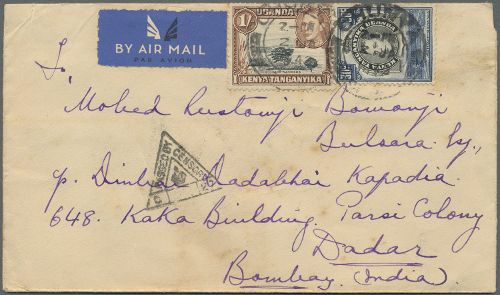 BY AIR MAIL
PAR AVION
UGANDA
1/-
KENYA TANGANYIKA
KENYA UGANDA
To,
Mohed Rustomji Bomanji
Bulsara Esq.,
c/o. Dinbai Dadabhai Kapadia.
648. Kaka Building. Parsi Colony
Dadar
Bombay. (India).
PASSED BY
CENSOR No